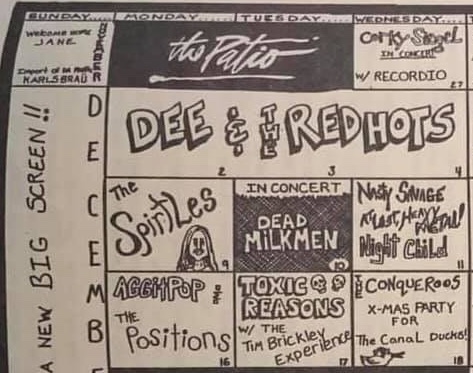 SUNDAY... MONDAY.... TUESDAY.... WEDNESDAY....
WELCOME HOME
JANE
KARLSBRÄU
NOVEMBER
the Patio
Corky Siegel
IN CONCERT
W/ RECORDIO
27
A NEW BIG SCREEN!!
DECEMBE
DEE & THE REDHOTS
2
3
4
The
Spirtles
9
IN CONCERT
DEAD
MILKMEN
10
NASTY SAVAGE
AT LAST, HEAVY METAL!
Night Child
11
AGGITPOP &
THE
Positions
16
TOXIC
REASONS
W/ THE
Tim Brickley
Experience
17
THE CONQUEROOS
X-MAS PARTY
FOR
The Canal Ducks!
18